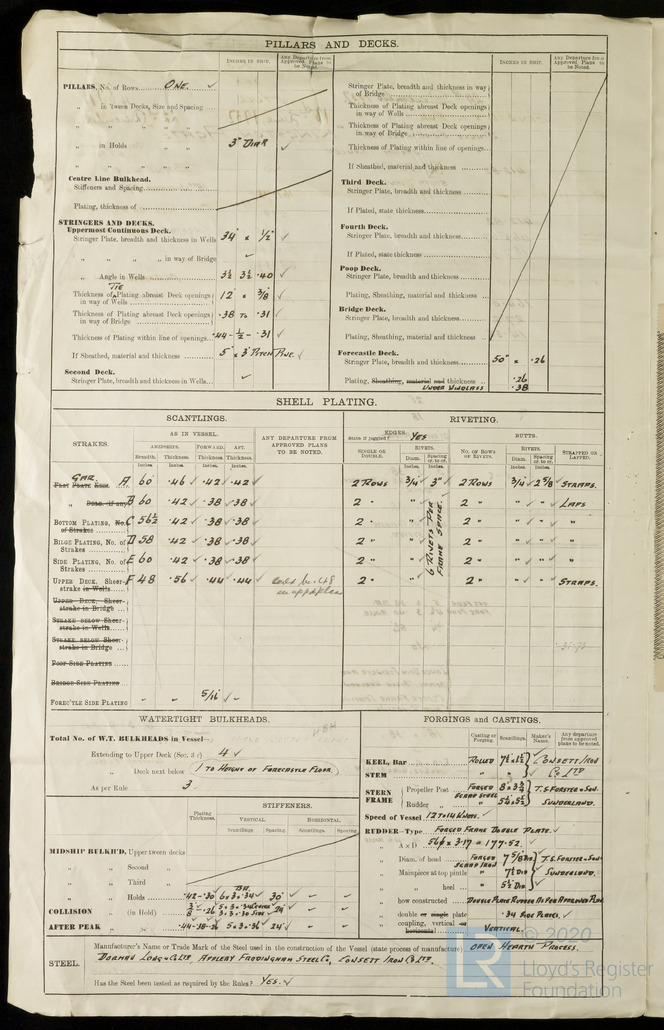 PILLARS AND DECKS.
INCHES IN SHIP.
Any Departure from Approved Plans to be Noted.
PILLARS, No. of Rows ONE. ✓
„ in 'tween Decks, Size and Spacing
„ „ „
„ in Holds „ „ 3" DIAR ✓
„ „ „ „
Centre Line Bulkhead.
Stiffeners and Spacing
Plating, thickness of
STRINGERS AND DECKS.
Uppermost Continuous Deck.
Stringer Plate, breadth and thickness in Wells 34" × 1/2" ✓
„ „ „ „ in way of Bridge -
„ Angle in Wells 3½ 3½ .40 ✓
Thickness of TIE Plating abreast Deck openings in way of Wells 12" × 3/8" ✓
Thickness of Plating abreast Deck openings in way of Bridge .38 TO .31 ✓
Thickness of Plating within line of openings .44 - ½ - .31 ✓
If Sheathed, material and thickness 5" × 3" PITCH PINE. ✓
Second Deck.
Stringer Plate, breadth and thickness in Wells
INCHES IN SHIP.
Any Departure from Approved Plans to be Noted.
Stringer Plate, breadth and thickness in way of Bridge
Thickness of Plating abreast Deck openings in way of Wells
Thickness of Plating abreast Deck openings in way of Bridge
Thickness of Plating within line of openings
If Sheathed, material and thickness
Third Deck.
Stringer Plate, breadth and thickness
If Plated, state thickness
Fourth Deck.
Stringer Plate, breadth and thickness
If Plated, state thickness
Poop Deck.
Stringer Plate, breadth and thickness
Plating, Sheathing, material and thickness
Bridge Deck.
Stringer Plate, breadth and thickness
Plating, Sheathing, material and thickness
Forecastle Deck.
Stringer Plate, breadth and thickness 50" × .26
Plating, Sheathing, material and thickness .26
UNDER WINDLASS .38
SHELL PLATING.
SCANTLINGS.
RIVETING.
STRAKES.
AS IN VESSEL.
AMIDSHIPS. FORWARD. AFT.
Breadth. Thickness. Thickness. Thickness.
Inches. Inches. Inches. Inches.
ANY DEPARTURE FROM APPROVED PLANS TO BE NOTED.
EDGES.
State if joggled? YES
SINGLE OR DOUBLE.
RIVETS.
Diam. Spacing cr. to cr.
Inches. Inches.
BUTTS.
No. OF ROWS OF RIVETS.
RIVETS.
Diam. Spacing cr. to cr.
Inches. Inches.
STRAPPED OR LAPPED.
GAR. A 60 .46 ✓ .42 ✓ .42 ✓ 2 ROWS 3/4 3" 2 ROWS 3/4 2 5/8 STRAPS.
„ Doub. (if any) B 60 .42 ✓ .38 ✓ .38 ✓ 2 " 2 " " " LAPS
BOTTOM PLATING, No. of Strakes C 56½ .42 ✓ .38 ✓ .38 ✓ 2 " 2 " " " "
BILGE PLATING, No. of Strakes D 58 .42 ✓ .38 ✓ .38 ✓ 2 " 2 " " " "
SIDE PLATING, No. of Strakes E 60 .42 ✓ .38 ✓ .38 ✓ 2 " 2 " " " "
UPPER DECK, Sheerstrake in Wells F 48 .56 ✓ .44 ✓ .44 ✓ 2 " 2 " " " STRAPS.
6 RIVETS PER FRAME SPACE.
UPPER DECK, Sheerstrake in Bridge
STRAKE BELOW Sheerstrake in Wells
STRAKE BELOW Sheerstrake in Bridge
POOP SIDE PLATING
BRIDGE SIDE PLATING
FOREC'TLE SIDE PLATING - - 5/16 ✓ -
WATERTIGHT BULKHEADS.
Total No. of W.T. BULKHEADS in Vessel—
Extending to Upper Deck (Sec. 3 c) 4 ✓
„ Deck next below (1 TO HEIGHT OF FORECASTLE FLOOR)
As per Rule 3
Plating Thickness.
STIFFENERS.
VERTICAL. HORIZONTAL.
Scantlings. Spacing. Scantlings. Spacing.
MIDSHIP BULKH'D, Upper tween decks
„ „ Second „
„ „ Third „
„ „ Holds .42-.30 6 × 3 × .34 30" - -
COLLISION „ (in Hold) 24" - -
AFTER PEAK „ „ 5 × 3 × .36 24" - -
FORGINGS and CASTINGS.
Casting or Forging. Scantlings. Maker's Name. Any departure from approved plans to be noted.
KEEL, Bar ROLLED 7½ × 1½ CONSETT IRON
STEM " " Co LTD
STERN FRAME
Propeller Post FORGED SCRAP STEEL 8 × 3¾ T.S. FORSTER & SON.
Rudder „ SUNDERLAND.
Speed of Vessel 12 TO 14 KNOTS. ✓
RUDDER—Type FORGED FRAME DOUBLE PLATE. ✓
„ A x D 56 × 3.17 = 177.52. ✓
„ Diam. of head FORGED SCRAP IRON 7 5/8 DIA T.S. FORSTER & SON
„ Mainpiece at top pintle " 7½ DIA SUNDERLAND.
„ „ heel " 5½ DIA
„ how constructed DOUBLE PLATE RUDDER AS PER APPROVED PLAN
„ double or single plate .34 SIDE PLATES. ✓
„ coupling, vertical or horizontal VERTICAL.
STEEL.
Manufacturer's Name or Trade Mark of the Steel used in the construction of the Vessel (state process of manufacture) OPEN HEARTH PROCESS.
DORMAN LONG & CO LTD, APPLEBY FRODINGHAM STEEL CO, CONSETT IRON CO LTD.
Has the Steel been tested as required by the Rules? YES. ✓
LR
© 2020
Lloyd's Register
Foundation